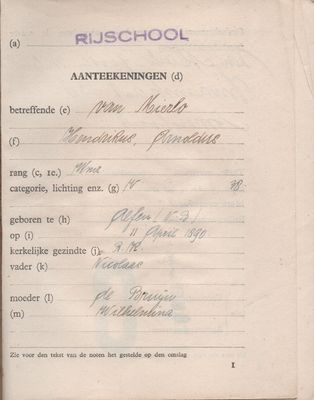 (a) RIJSCHOOL
AANTEEKENINGEN (d)
betreffende (e) van Mierlo
(f) Hendrikus, Arnoldus
rang (c, 1e.) Wmr
categorie, lichting enz. (g) IV 38
geboren te (h) Alfen (N.B)
op (i) 11 April 1890
kerkelijke gezindte (j) R.K.
vader (k) Nicolaas
moeder (l) de Bruijn
(m) Wilhelmina
Zie voor den tekst van de noten het gestelde op den omslag
1